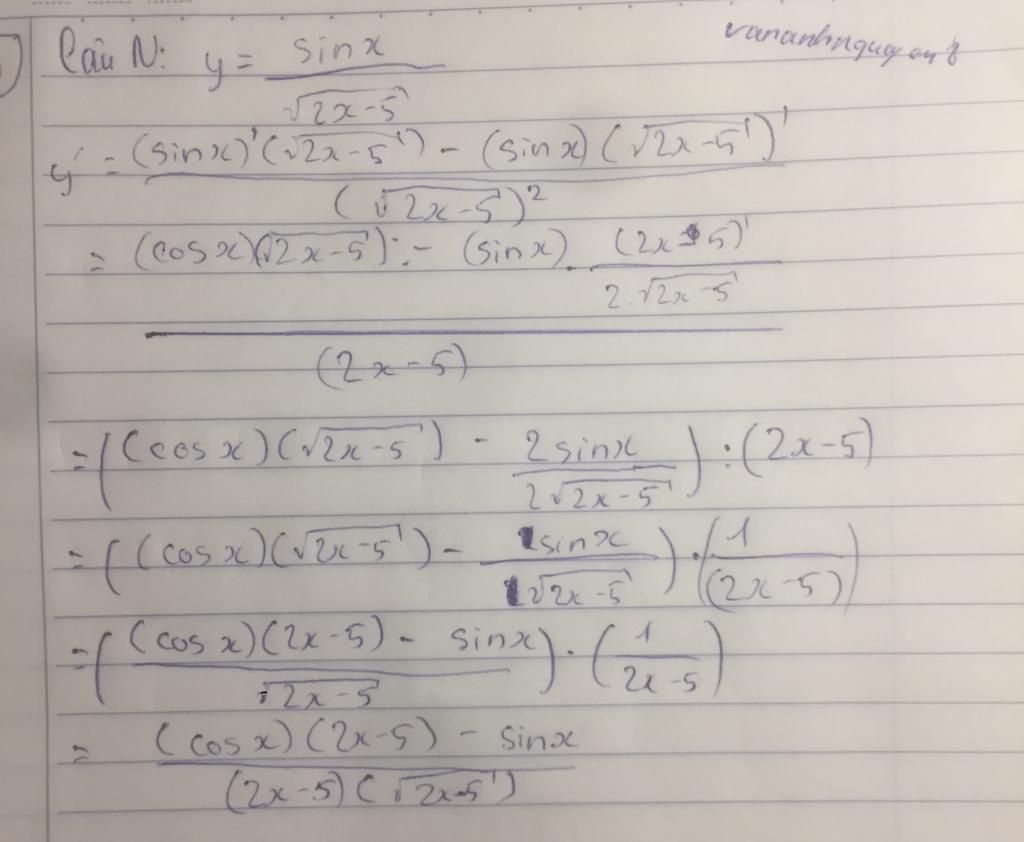 Câu N: y = sinx / √(2x-5)
vananhnguyen8
y' = ((sinx)'(√(2x-5)) - (sinx)(√(2x-5))') / (√(2x-5))²
= ((cosx)(√(2x-5)) - (sinx) . (2x-5)' / (2.√(2x-5))) / (2x-5)
= ((cosx)(√(2x-5)) - 2sinx / (2√(2x-5))) : (2x-5)
= ((cosx)(√(2x-5)) - 1sinx / (1√(2x-5))) . (1 / (2x-5))
= (((cosx)(2x-5) - sinx) / √(2x-5)) . (1 / (2x-5))
= ((cosx)(2x-5) - sinx) / ((2x-5)(√(2x-5)))